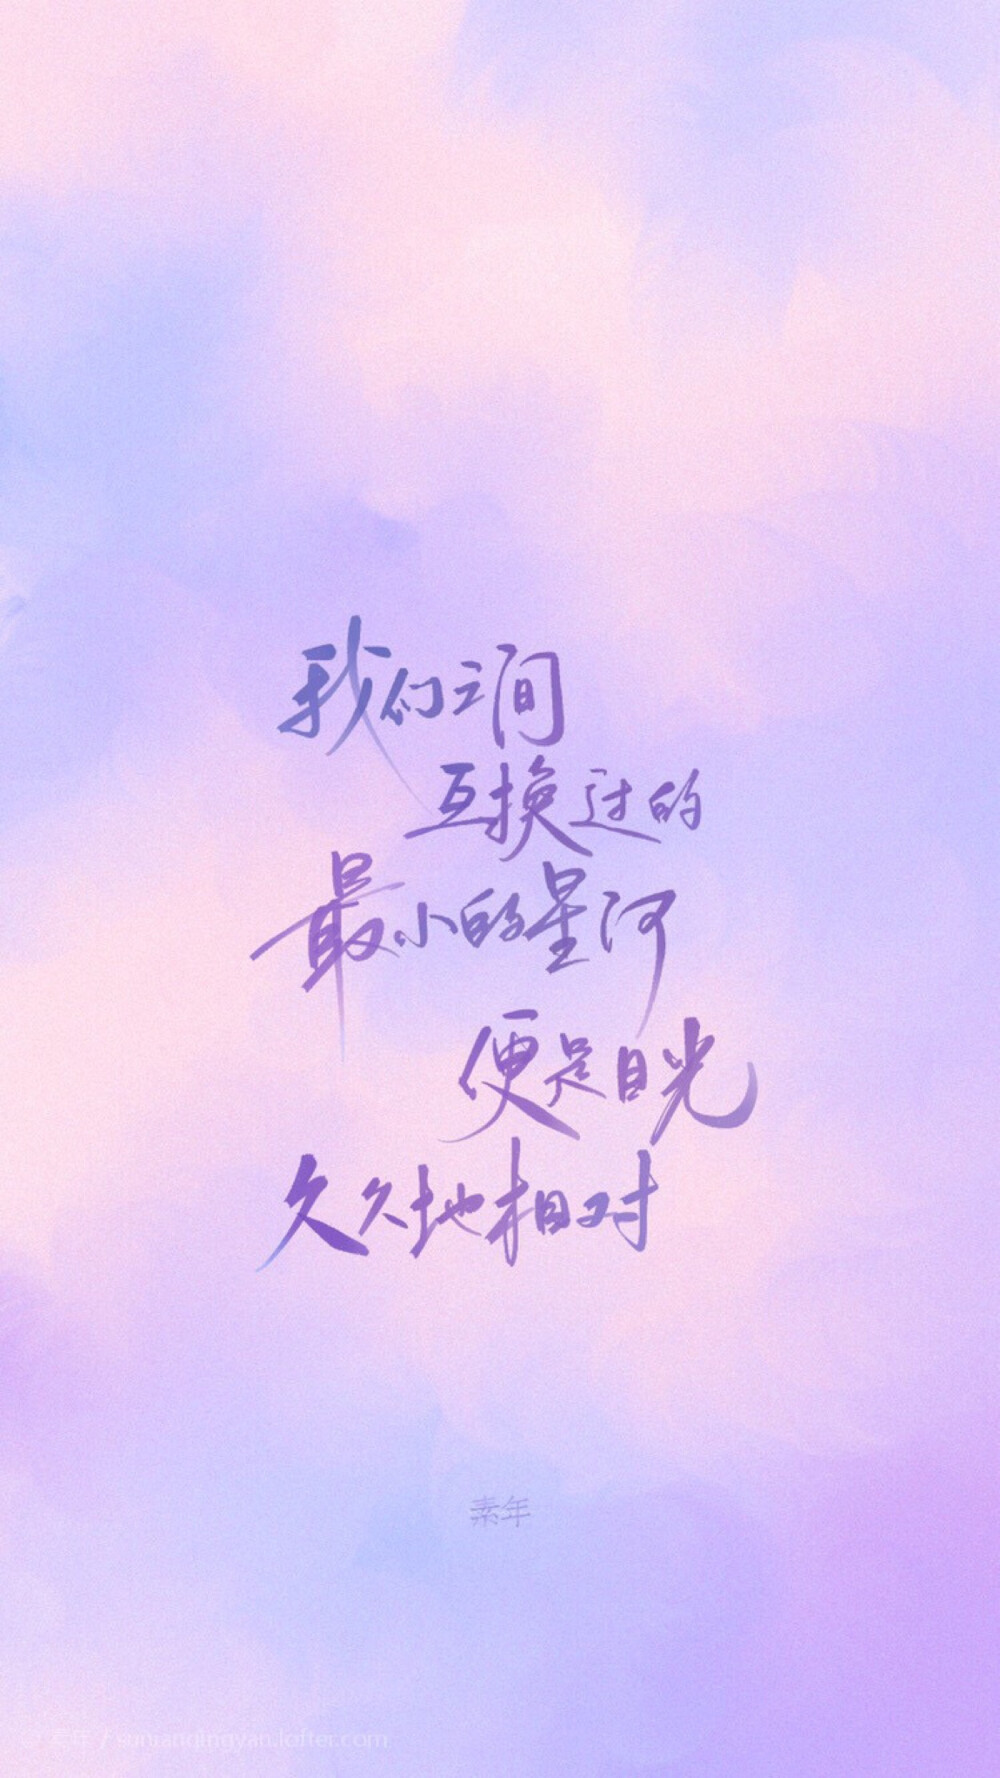 我们之间
互换过的
最小的星河
便是目光
久久地相对
素年
素年 / sunianqingyan.lofter.com